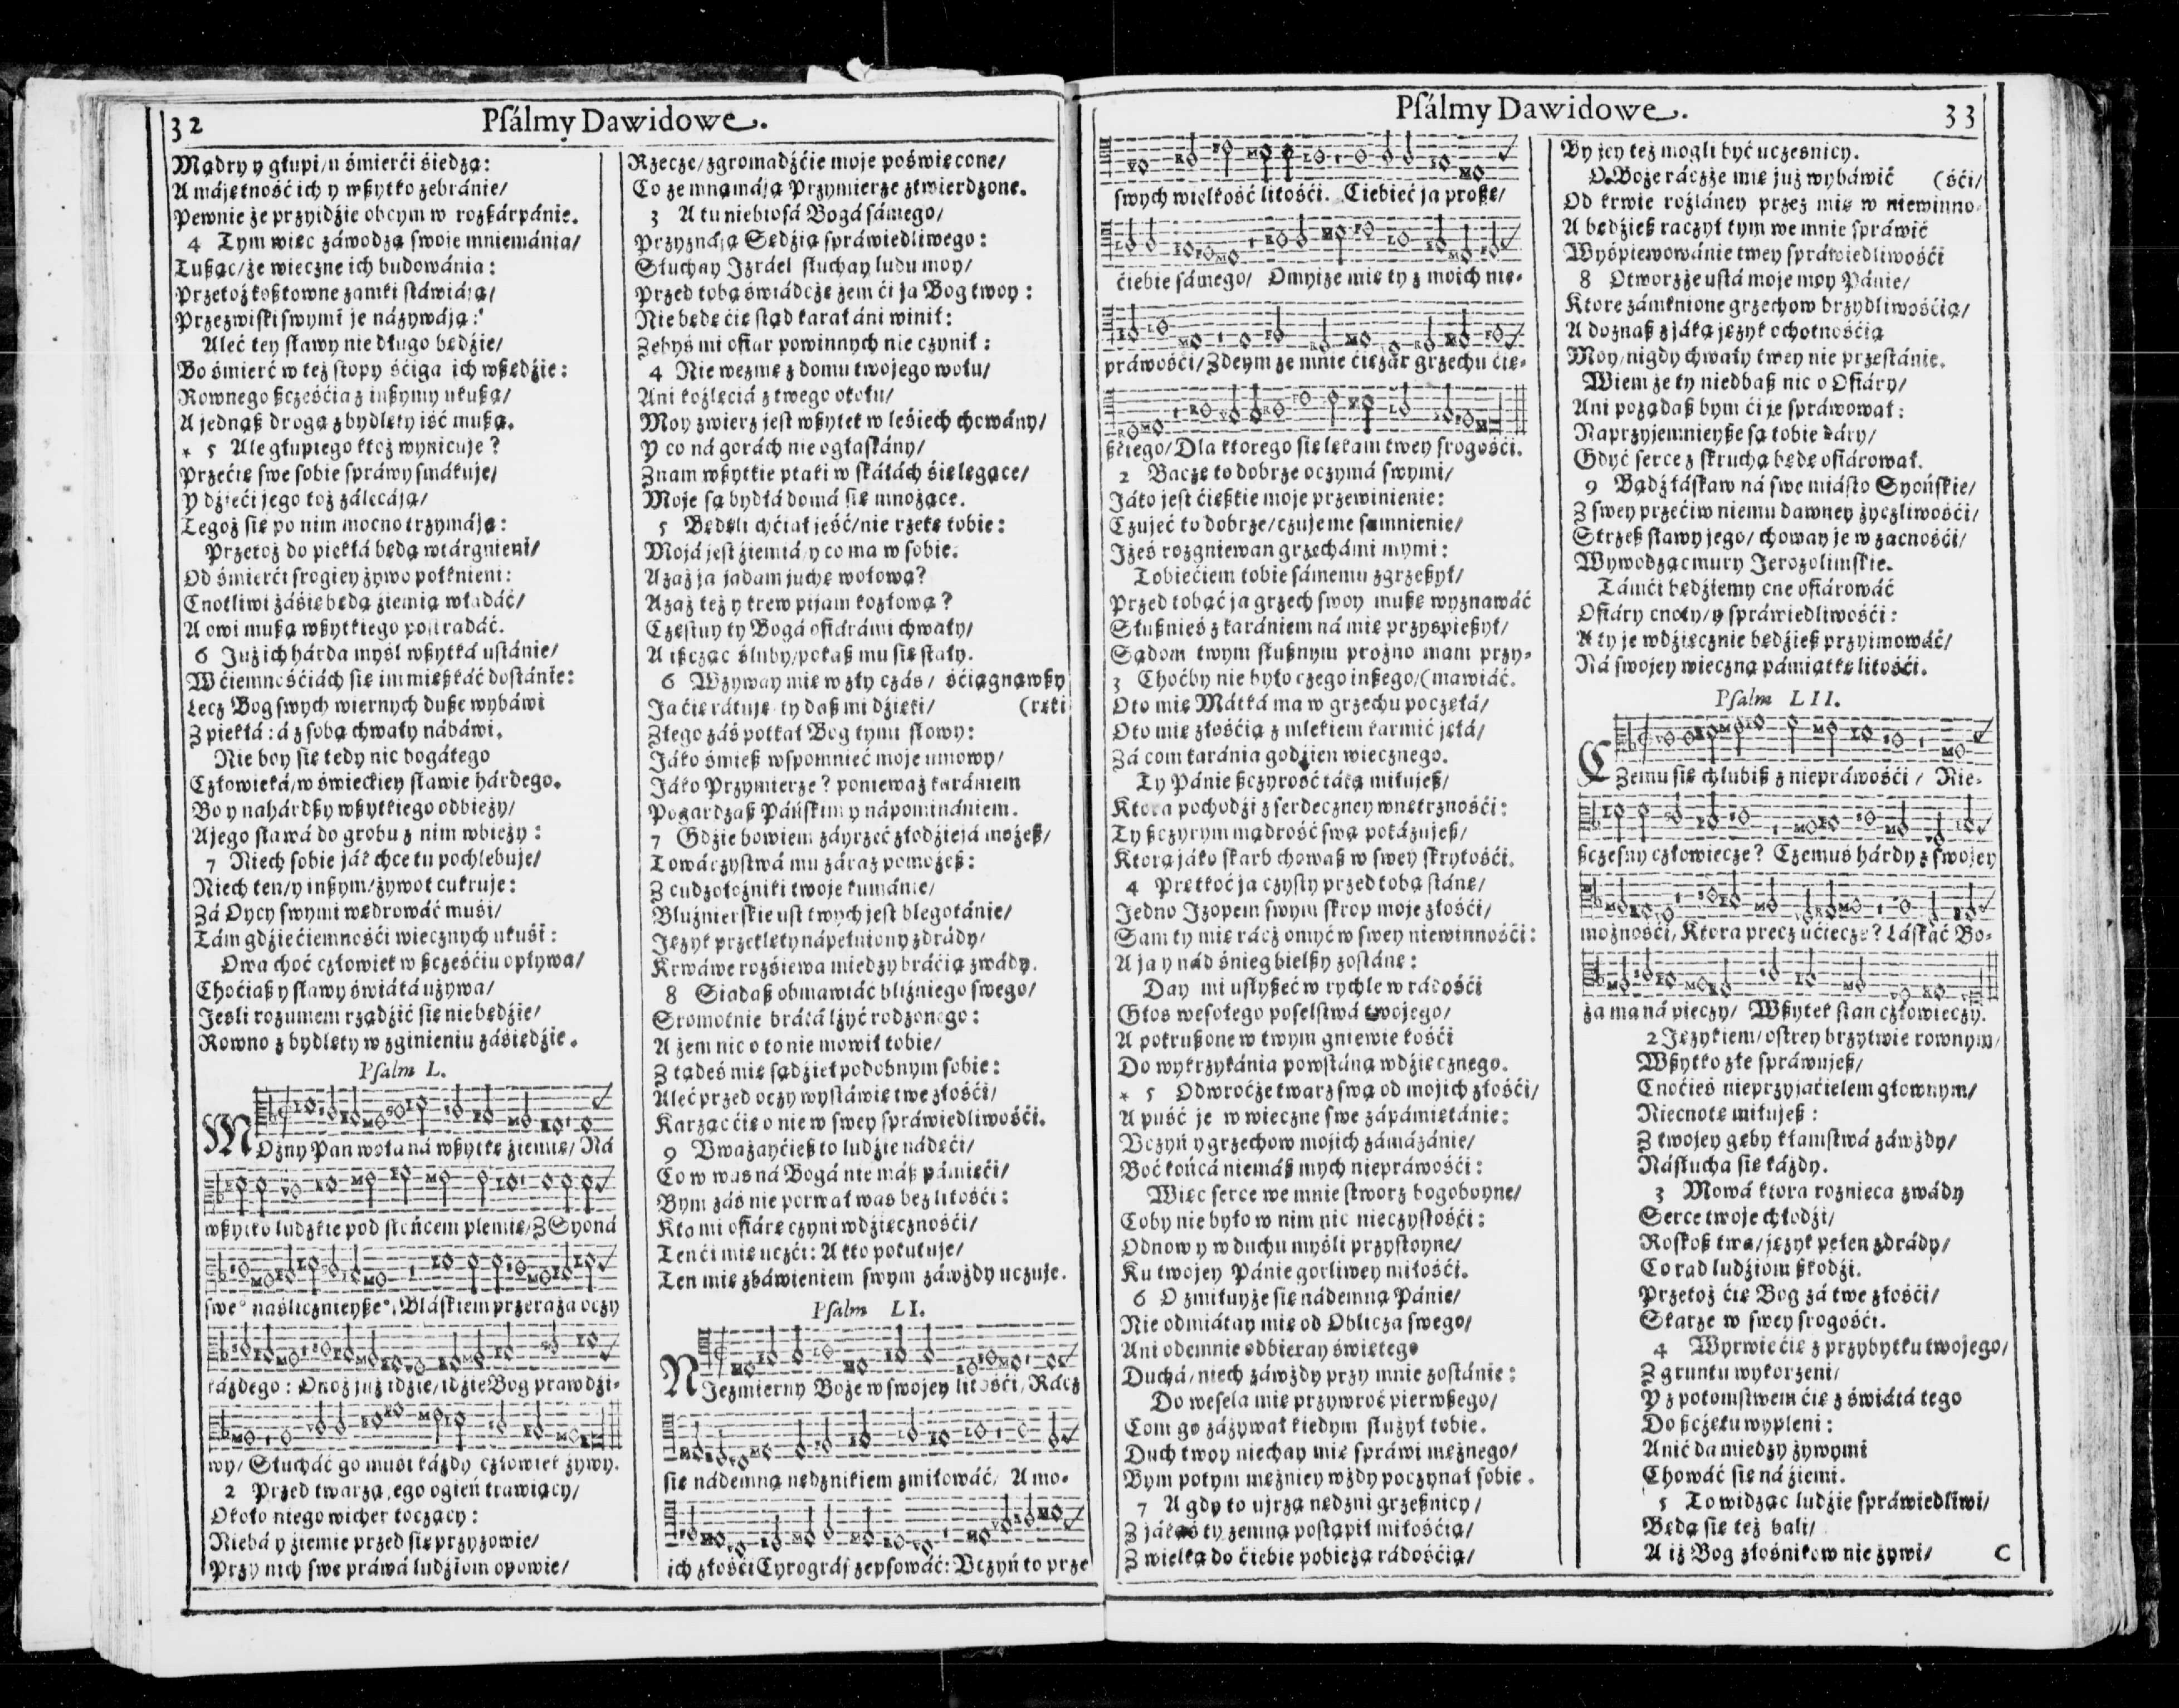 32 Psálmy Dawidowe.
Mądry y głupi/u śmierći śiedzą:
A májętność ich y wßytko zebránie/
Pewnie że przyidźie obcym w rozßárpánie.
4 Tym więc záwodzą swoje mniemánia/
Tußąc/że wieczne ich budowánia:
Przetoż koßtowne zamki stáwiáją/
Przezwiski swymi je názywáją:
Aleć tey sławy nie długo będźie/
Bo śmierć w też stopy śćiga ich wßędźie:
Rownego ßczęśćia z inßymy ukußą/
A jednąß drogą z bydlęty iść mußą.
* 5 Ale głupiego ktoż wynicuje?
Przećię swe sobie spráwy smákuje/
Y dźieći jego toż zálecáją/
Tegoż się po nim mocno trzymáją:
Przetoż do piekłá będą wtárgnieni/
Od śmierći srogiey żywo połknieni:
Cnotliwi záśię będą źiemią władáć/
A owi mußą wßytkiego postradáć.
6 Już ich hárda myśl wßytká ustánie/
W ćiemnośćiách się im mießkáć dostánie:
Lecz Bog swych wiernych duße wybáwi
Z piekłá: á z sobą chwały nábáwi.
Nie boy się tedy nic bogátego
Człowieká/w świeckiey sławie hárdego.
Bo y nahárdßy wßytkiego odbieży/
A jego sławá do grobu z nim wbieży:
7 Niech sobie ják chce tu pochlebuje/
Niech ten/y inßym/żywot cukruje:
Zá Oycy swymi wędrowáć muśi/
Tám gdźie ćiemnośći wiecznych ukuśi:
Owa choć człowiek w ßczęśćiu opływa/
Choćiaß y sławy świátá używa/
Jesli rozumem rządźić się nie będźie/
Rowno z bydlęty w zginieniu záśiędźie.
Psalm L.
MOżny Pan woła ná wßytkę źiemię/ Ná
wßytko ludzkie pod słońcem plemię/ Z Syoná
swe° naślicznieyße°, Bláskiem przeraża oczy
każdego: Onoż już idźie/idźie Bog prawdźi-
wy/ Słucháć go muśi káżdy człowiek żywy.
2 Przed twarzą jego ogień trawiący/
Około niego wicher toczący:
Niebá y źiemie przed się przyzowie/
Przy nich swe práwá ludźiom opowie/
Rzecze/zgromadźćie moje poświęcone/
Co ze mną máją Przymierze ztwierdzone.
3 A tu niebiosá Bogá sámego/
Przyznáją Sędźią spráwiedliwego:
Słuchay Izráel słuchay ludu moy/
Przed tobą świádczę żem ći ja Bog twoy:
Nie będę ćię stąd karał áni winił:
Zebyś mi ofiar powinnych nie czynił:
4 Nie wezmę z domu twojego wołu/
Ani koźlęciá z twego okołu/
Moy zwierz jest wßytek w leśiech chowány/
Y co ná gorách nie ogłaskány/
Znam wßytkie ptaki w skáłách śię lęgące/
Moje są bydłá domá się mnożące.
5 Będęli chćiał jeść/nie rzekę tobie:
Mojá jest źiemiá/y co ma w sobie.
Azaż ja jadam juchę wołową?
Azaż też y krew pijam kozłową?
Częstuy ty Bogá ofiárámi chwały/
A ißcząc śluby/pokaß mu się stały.
6 Wzyway mię w zły czás/ śćiągnąwßy
Ja ćię rátuję ty daß mi dźięki/ (ręki
Złego záś potkał Bog tymi słowy:
Jáko śmieß wspomnieć moje umowy/
Jáko Przymierze? ponieważ karániem
Pogardzaß Páńskim y nápominániem.
7 Gdźie bowiem záyrzeć złodźiejá możeß/
Towárzystwá mu záraz pomożeß:
Z cudzołożniki twoje kumánie/
Bluźnierskie ust twych jest blegotánie/
Język przeklęty nápełniony zdrády/
Krwáwe rozśiewa miedzy bráćią zwády.
8 Siadaß obmawiáć bliźniego swego/
Sromotnie brátá lżyć rodzonego:
A żem nic o to nie mowił tobie/
Z tądeś mię sądźieł podobnym sobie:
Aleć przed oczy wystáwię twe złośći/
Karząc ćię o nie w swey spráwiedliwośći.
9 Uważayćieß to ludźie nádęći/
Co w was ná Bogá nie máß pámięći/
Bym záś nie porwał was bez litośći:
Kto mi ofiárę czyni wdźięcznośći/
Ten ći mię uczći: A kto pokutuje/
Ten mię zbáwieniem swym záwżdy uczuje.
Psalm LI.
NIezmierny Boże w swojey litośći/ Rácz
się nádemną nędznikiem zmiłowáć/ A mo-
ich złośći Cyrográf zepsowáć: Uczyń to prze
Psálmy Dawidowe. 33
swych wielkość litośći. Ciebieć ja proßę/
ćiebie sámego/ Omyiże mię ty z moich nie-
práwośći/ Zdeym ze mnie ćiężár grzechu ćię-
ßkiego/ Dla ktorego się lękam twey srogośći.
2 Baczę to dobrze oczymá swymi/
Jáko jest ćięßkie moje przewinienie:
Czujeć to dobrze/czuje me sumnienie/
Iżeś rozgniewan grzechámi mymi:
Tobiećiem tobie sámemu zgrzeßył/
Przed tobąć ja grzech swoy mußę wyznawáć
Słußnieś z karániem ná mię przyspießył/
Sądom twym słußnym prożno mam przy-
3 Choćby nie było czego inßego/ (mawiáć.
Oto mię Mátká ma w grzechu poczęłá/
Oto mię złośćią z mlekiem karmić jęłá/
Zá com karánia godźien wiecznego.
Ty Pánie ßczyrość táką miłujeß/
Ktora pochodźi z serdeczney wnętrznośći:
Ty ßczyrym mądrość swą pokázujeß/
Ktorą jáko skarb chowaß w swey skrytośći.
4 Prętkoć ja czysty przed tobą stánę/
Jedno Izopem swym skrop moje złośći/
Sam ty mię rácż omyć w swey niewinnośći:
A ja y nád śnieg bielßy zostánę:
Day mi usłyßeć w rychle w rádośći
Głos wesołego poselstwá twojego/
A pokrußone w twym gniewie kośći
Do wykrzykánia powstáną wdźięcznego.
* 5 Odwroćże twarz swą od mojich złośći/
A puść je w wieczne swe zápámiętánie:
Uczyń y grzechow mojich zámázánie/
Boć końcá niemáß mych niepráwośći:
Więc serce we mnie stworz bogoboyne/
Coby nie było w nim nic nieczystośći:
Odnow y w duchu myśli przystoyne/
Ku twojey Pánie gorliwey miłośći.
6 O zmiłuyże się nádemną Pánie/
Nie odmiátay mię od Oblicza swego/
Ani odemnie odbieray świętego
Duchá/niech záwżdy przy mnie zostánie:
Do wesela mię przywroć pierwßego/
Com go záżywał kiedym służył tobie.
Duch twoy niechay mię spráwi mężnego/
Bym potym mężniey wżdy poczynał sobie.
7 A gdy to ujrzą nędzni grzeßnicy/
Z jákąś ty zemną postąpił miłośćią/
Z wielką do ćiebie pobieżą rádośćią/
By jey też mogli być uczesnicy.
O Boże ráczże mię już wybáwić (śći/
Od krwie rozláney przez mię w niewinno-
A będźieß raczył tym we mnie spráwić
Wyśpiewowánie twey spráwiedliwośći
8 Otworzże ustá moje moy Pánie/
Ktore zámknione grzechow brzydliwośćią/
A doznaß z jáką język ochotnośćią
Moy/nigdy chwały twey nie przestánie.
Wiem że ty niedbaß nic o Ofiáry/
Ani pożądaß bym ći je spráwował:
Naprzyjemnieyße są tobie dáry/
Gdyć serce z skruchą będę ofiárował.
9 Bądź łáskaw ná swe miásto Syońskie/
Z swey przećiw niemu dawney życzliwośći/
Strzeß sławy jego/ choway je w zacnośći/
Wywodząc mury Jerozolimskie.
Támći będźiemy cne ofiárowáć
Ofiáry cnoty/y spráwiedliwośći:
A ty je wdźięcznie będźieß przyimowáć/
Ná swojey wieczną pámiątkę litośći.
Psalm LII.
CZemu się chlubiß z niepráwośći/ Nie-
ßczęsny człowiecze? Czemuś hárdy z swojey
możnośći/ Ktora precz ućiecze? Láskáć Bo-
ża ma ná pieczy/ Wßytek stan człowieczy.
2 Językiem/ostrey brzytwie rownym/
Wßytko złe spráwujeß/
Cnoćieś nieprzyjaćielem głownym/
Niecnotę miłujeß:
Z twojey gęby kłamstwá záwżdy/
Násłucha się káżdy.
3 Mowá ktora roznieca zwády
Serce twoje chłodźi/
Roskoß twa/język pełen zdrády/
Co rad ludźiom ßkodźi.
Przetoż ćię Bog zá twe złośći/
Skarze w swey srogośći.
4 Wyrwie ćię z przybytku twojego/
Z gruntu wykorzeni/
Y z potomstwem ćię z świátá tego
Do ßczętu wypleni:
A nić da miedzy żywymi
Chowáć się ná źiemi.
5 To widząc ludźie spráwiedliwi/
Będą się też bali/
A iż Bog złośnikow nie żywi/ C